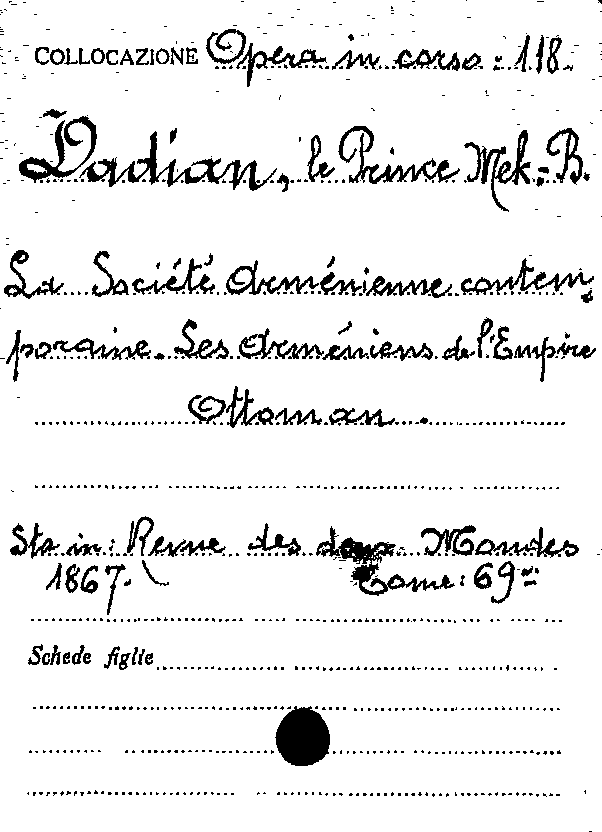 COLLOCAZIONE Opera in corso: 118.
Dadian, le Prince Mek.-B.
La Société Arménienne contem-
poraine. Les Arméniens de l'Empire
Ottoman.
Sta in: Revue des deux Mondes
1867. Tome: 69
Schede figlie